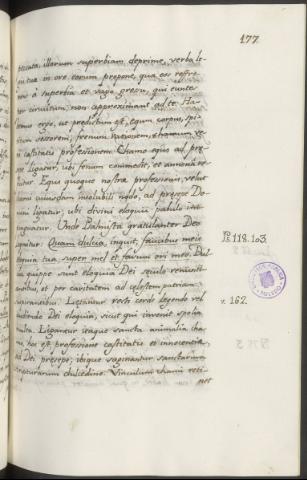 177.
peccata, illorum superbiam deprime, verba le-
gis tua in ore eorum propone, qua eos refre-
nes à superbia et vago gressu, qui eunte
per circuitum, non approximant ad te. Ha-
ergo, ut predictum est, equm corpus, spi-
sessorem, frenum rationem, chamum ve-
rò castitatis professionem. Chamo equs ad pre-
sepe ligatur, ubi fenum commedit, et annona re-
ficitur. Equs quoque nostra professionis, velut
quodam insolubili nodo, ad presepe Do-
mini ligatur; ubi divini eloquii pabulo
Unde Psalmista gratulanter Deo
loquitur: Quam dulcia, inquit, faucibus meis
eloquia tua, super mel et favum ori meo. Dul-
cia quippe sunt eloquia Dei seculo renunti-
antibus, et per caritatem ad celestem patriam
suspirantibus. Lętantur recti corde legendo vel
audiendo Dei eloquia, sicut qui invenit spolia
multa. Ligantur itaque sancta animalia cha-
mo, hoc est professione castitatis et innocentia,
ad Dei presepe; ibique saginantur sanctarum
scripturarum dulcedine. Vinculum chami reti-
net
Ps. 118. 103.
v. 162.